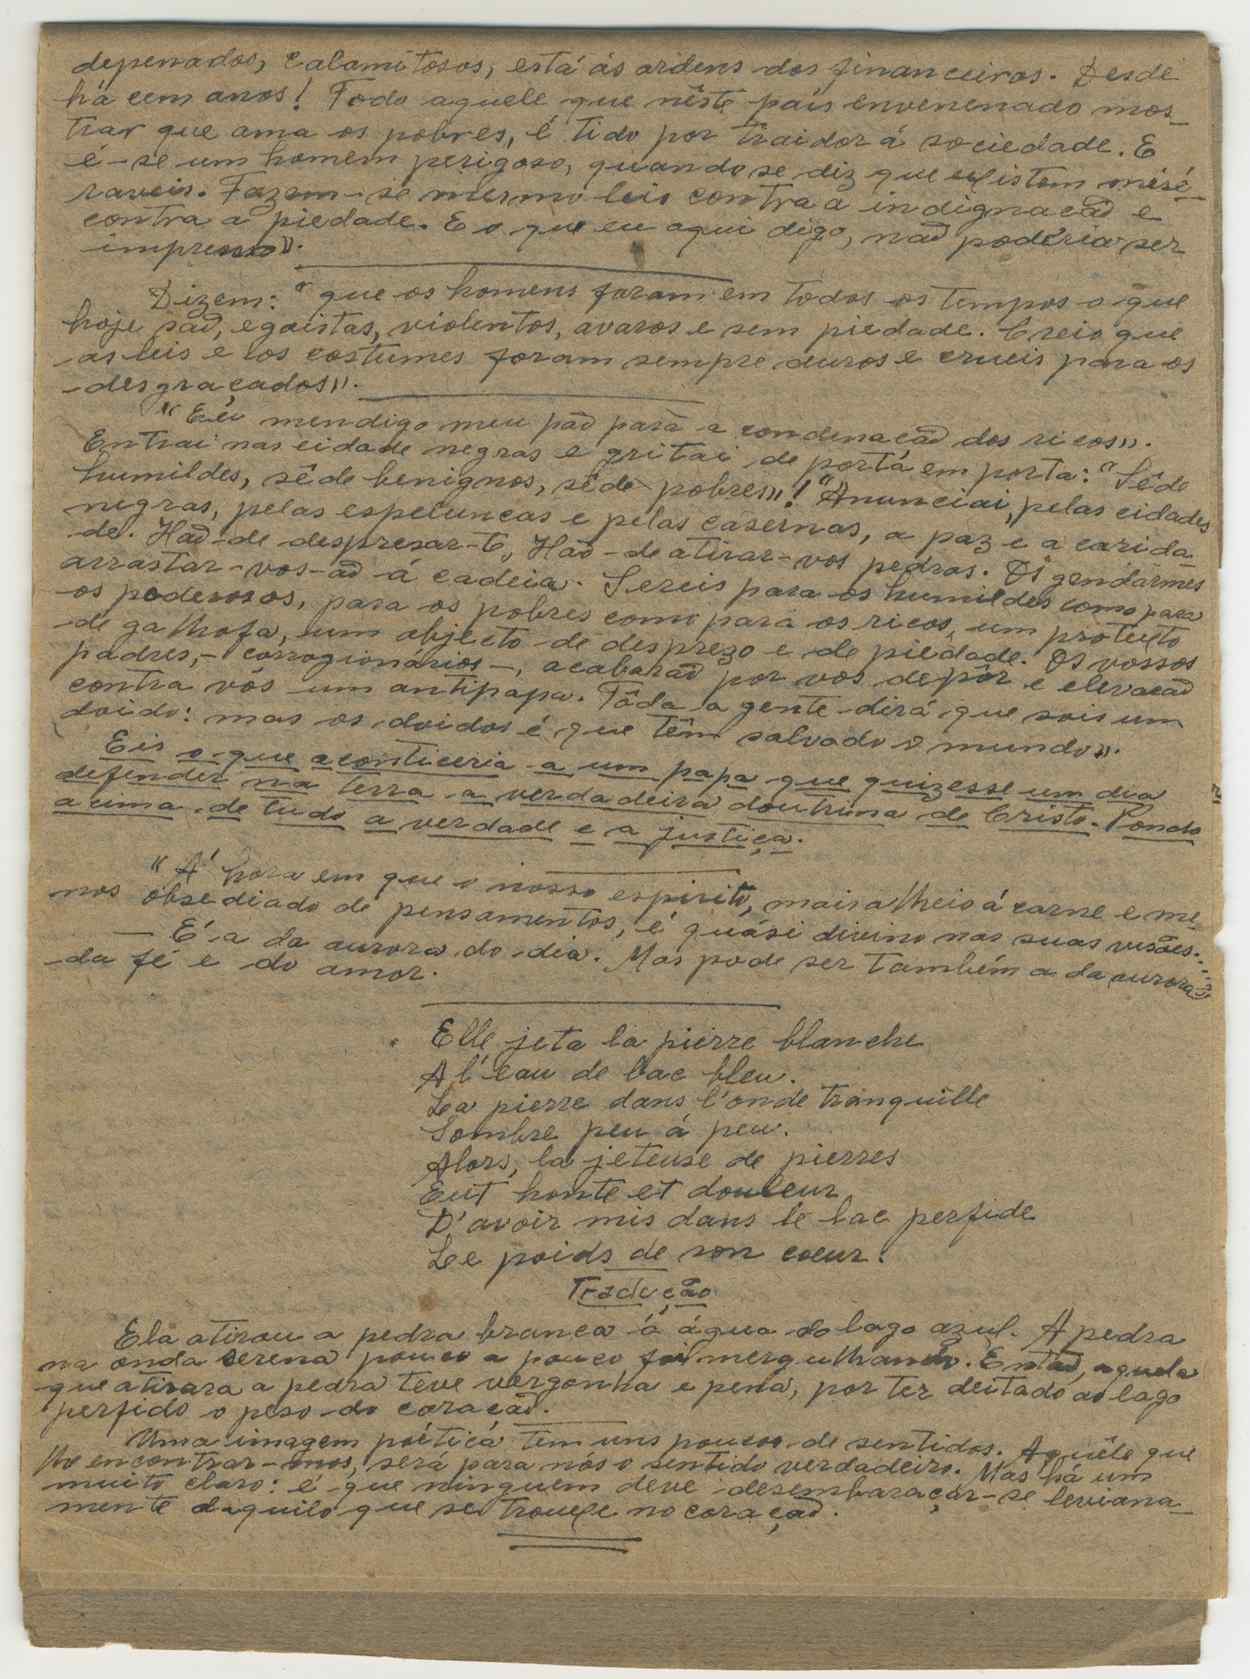 depenados, calamitosos, está ás ordens dos financeiros. Desde
há cem anos! Todo aquele que nêste país envenenado mos-
trar que ama os pobres, é tido por traidor á sociedade. E
é-se um homem perigoso, quando se diz que existem misé-
raveis. Fazem-se mesmo leis contra a indignacão e
contra a piedade. E o que eu aqui digo, não podéria ser
impresso».
Dizem: "que os homens foram em todos os tempos o que
hoje são, egoistas, violentos, avaros e sem piedade. Creio que
as leis e os costumes foram sempre duros e crueis para os
desgraçados».
"Eu mendigo meu pão para a condenacão dos ricos».
Entrai nas cidade negras e gritai de porta em porta: "Sêde
humildes, sêde benignos, sêde pobres»! "Anunciai, pelas cidades
negras, pelas espeluncas e pelas casernas, a paz e a carida-
de. Hão-de despresar-te, Hão-de atirar-vos pedras. Os gendarmes
arrastar-vos-ão á cadeia. Sereis para os humildes como para
os poderosos, para os pobres como para os ricos, um protexto
de galhofa, um objecto de desprezo e de piedade. Os vossos
padres, - corregionários -, acabarão por vos depôr e elevacão
contra vós um antipapa. Tôda a gente dirá que sois um
doido: mas os doidos é que têm salvado o mundo».
Eis o que aconticeria a um papa que quizesse um dia
defender na terra a verdadeira doutrina de Cristo. Pondo
acima de tudo a verdade e a justiça.
"A' hora em que o nosso espirito, mais alheio á carne e me-
nos obsediado de pensamentos, é quási divino nas suas visões...
— É a da aurora do dia. Mas pode ser também a da aurora
da fé e do amor.
Elle jeta la pierre blanche
A l'eau de lac bleu.
La pierre dans l'onde tranquille
Sombre peu á peu.
Alors, la jeteuse de pierres
Eut honte et douleur
D'avoir mis dans le lac perfide
Le poids de son coeur.
Tradução
Ela atirou a pedra branca á água do lago azul. A pedra
na onda serena pouco a pouco foi mergulhando. Então, aquela
que atirara a pedra teve vergonha e pena, por ter deitado ao lago
perfido o peso do coracão.
Uma imagem poética tem uns poucos de sentidos. Aquêle que
lhe encontrar-mos, será para nós o sentido verdadeiro. Mas há um
muito claro: é que ninguem deve desembaraçar-se leviana-
mente daquilo que se trouxe no coração.